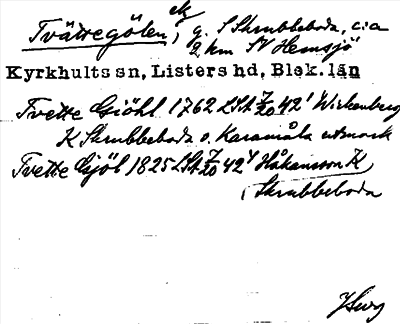 ek
Tvättegölen, g. S Skrubbeboda, c:a
2 km SV Hemsjö
Kyrkhults sn, Listers hd, Blek. län
Tvette Giöhl 1762 LSt 7/20 42' Wickenberg
K Skrubbeboda o. Karamåla utmark
Tvette Gjöl 1825 LSt 7/20 42 Håkansson K
Skrubbeboda